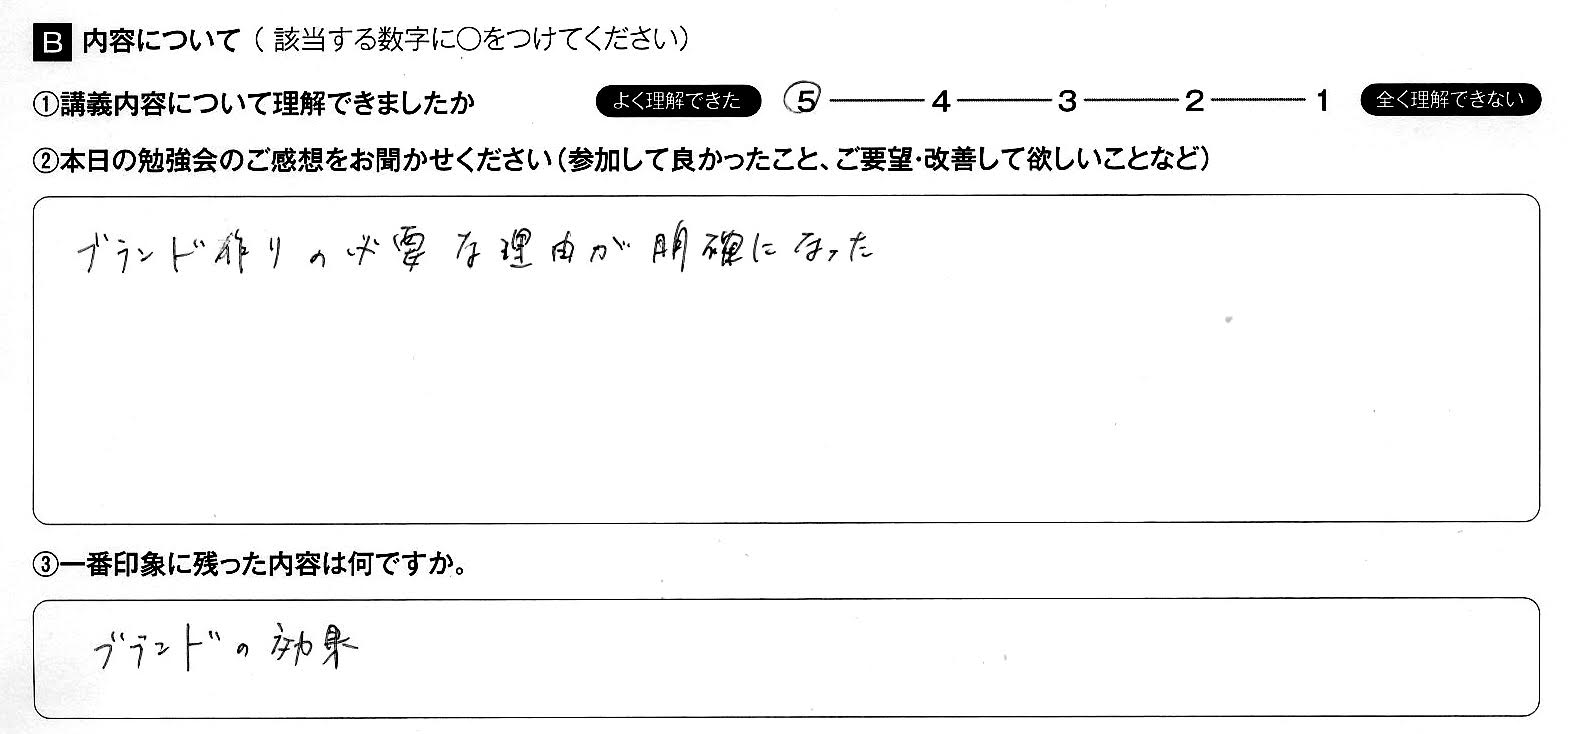 B 内容について（該当する数字に○をつけてください）
①講義内容について理解できましたか よく理解できた 5 4 3 2 1 全く理解できない
②本日の勉強会のご感想をお聞かせください（参加して良かったこと、ご要望・改善して欲しいことなど）
ブランド作りの必要な理由が明確になった
③一番印象に残った内容は何ですか。
ブランドの効果